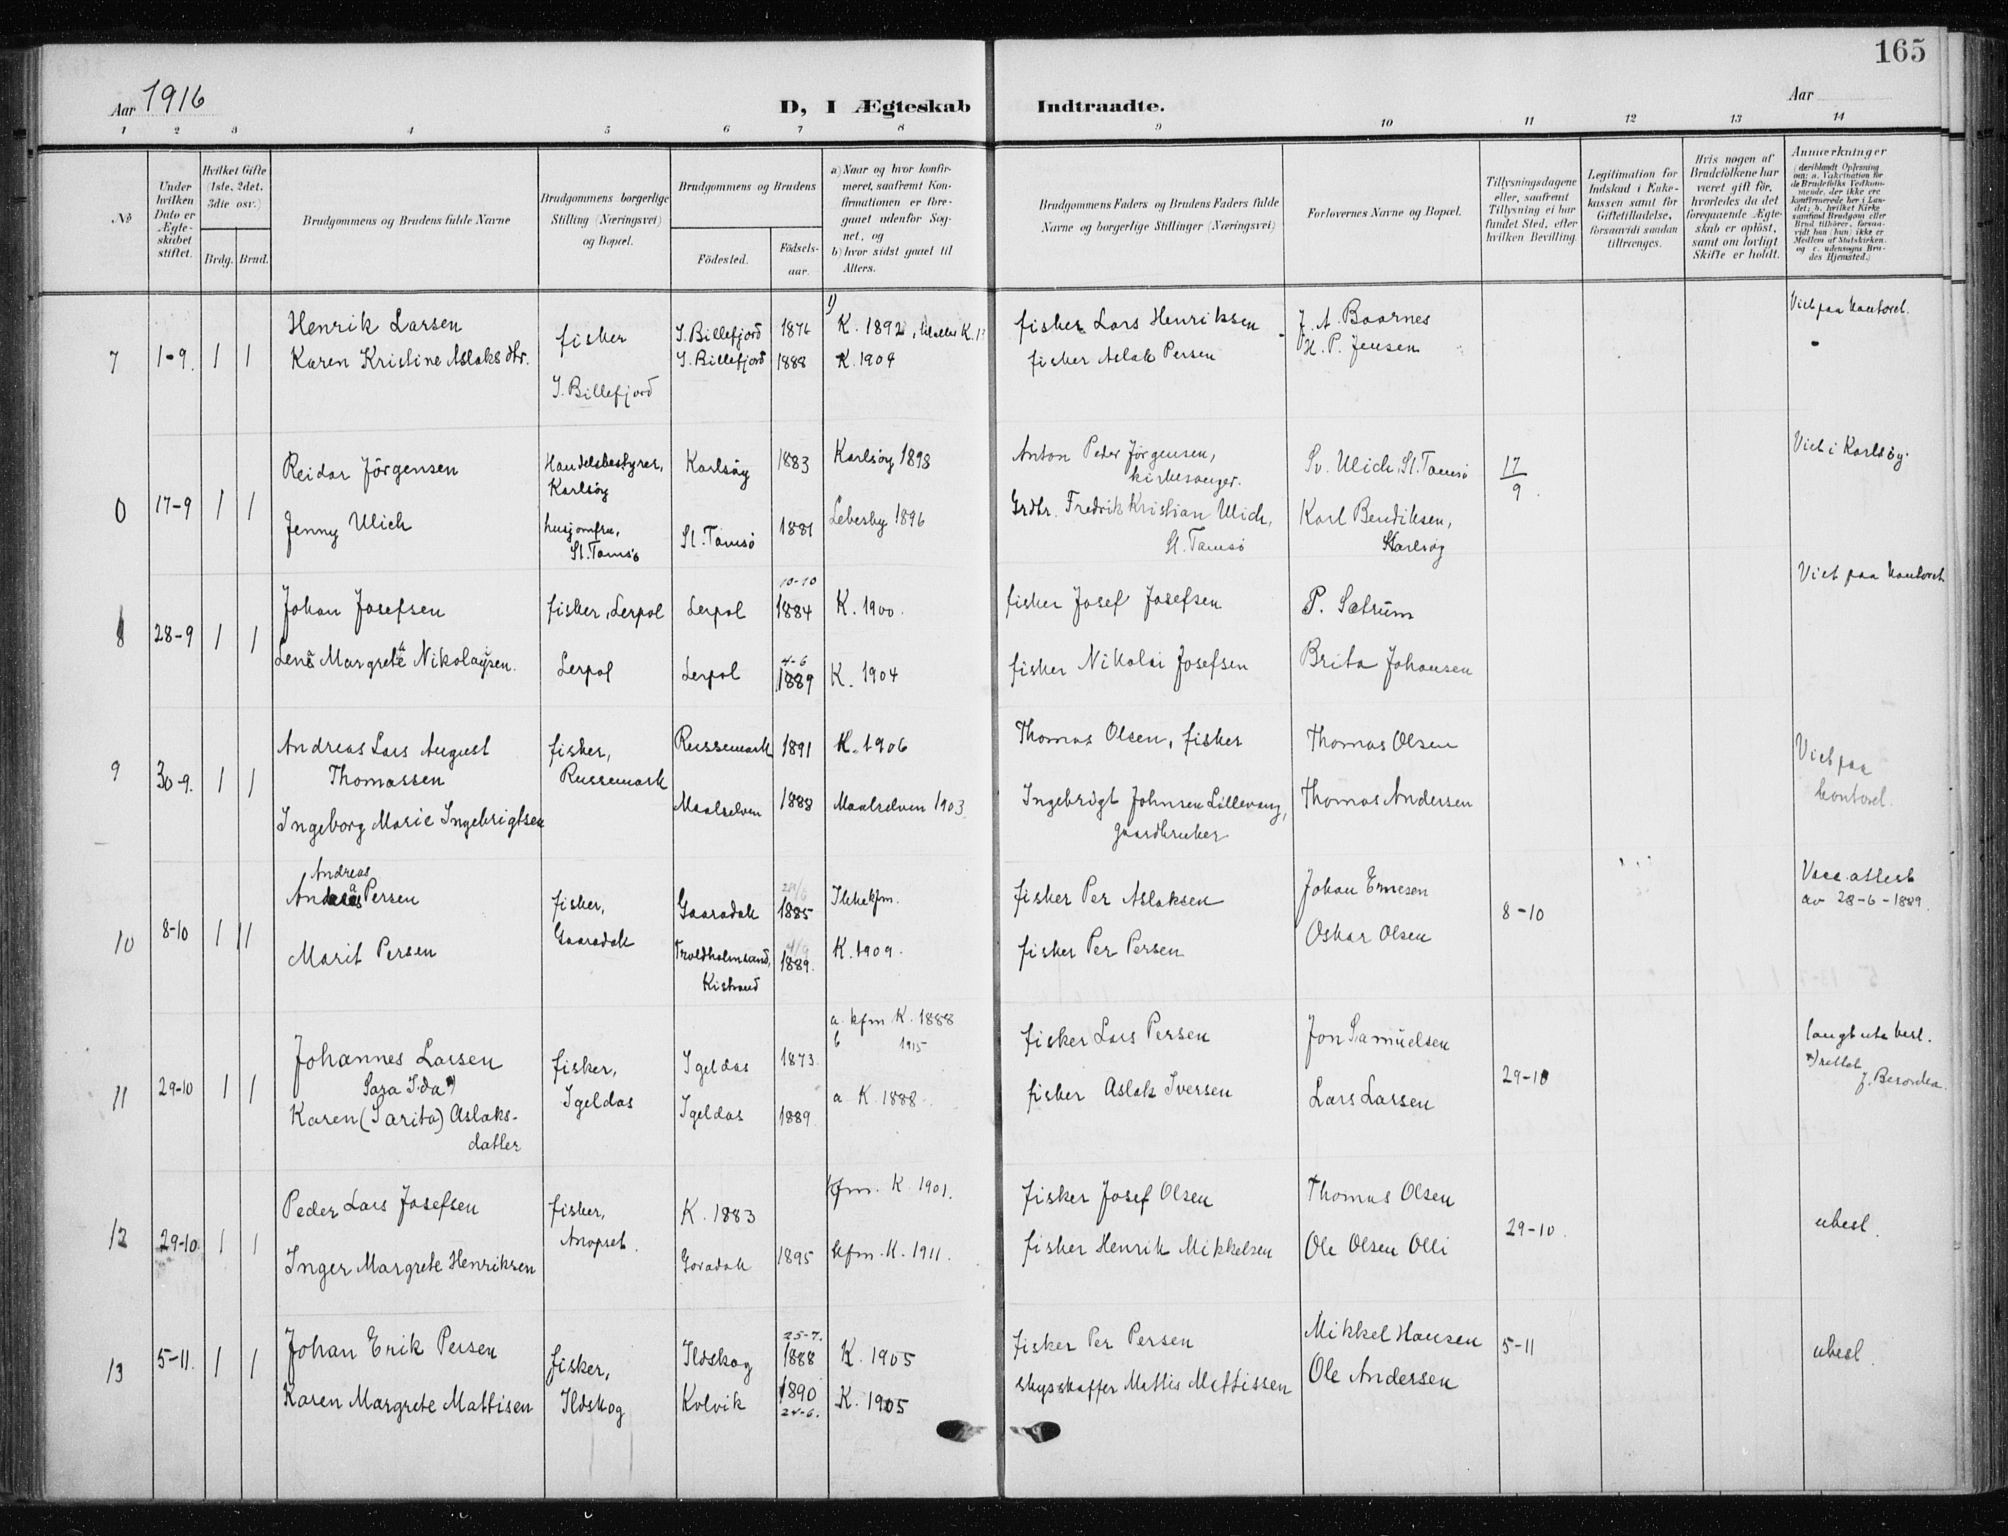 165
Aar 1916
D, I Ægteskab Indtraadte.
Aar
1 2 3 4 5 6 7 8 9 10 11 12 13 14
No
Under hvilken Dato er Ægteskabet stiftet.
Hvilket Gifte (1ste, 2det, 3die osv.)
Brdg. Brud.
Brudgommens og Brudens fulde Navne
Brudgommens borgerlige Stilling (Næringsvei) og Bopæl.
Brudgommens og Brudens
Födested.
Födselsaar.
a) Naar og hvor konfirmeret, saafremt Konfirmationen er foregaaet udenfor Sognet, og
b) hvor sidst gaaet til Alters.
Brudgommens Faders og Brudens Faders fulde Navne og borgerlige Stillinger (Næringsvei)
Forlovernes Navne og Bopæl.
Tillysningsdagene eller, saafremt Tillysning ei har fundet Sted, efter hvilken Bevilling.
Legitimation for Indskud i Enkekassen samt for Giftetilladelse, forsaavidt saadan tiltrænges.
Hvis nogen af Brudefolkene har været gift för, hvorledes da det foregaaende Ægteskab er oplöst, samt om lovligt Skifte er holdt.
Anmærkninger (deriblandt Oplysning om: a. Vakcination for de Brudefolks Vedkommende, der ikke ere konfirmerede her i Landet; b. hvilket Kirkesamfund Brudgom eller Brud tilhörer, forsaavidt han (hun) ikke er Medlem af Statskirken, og c. udensogns Brudes Hjemsted.)
7 1-9. 1 1 Henrik Larsen fisker I. Billefjord 1876 K. 1892, fisker Lars Henriksen J. A. Baarnes Viet paa kontoret.
Karen Kristine Aslaksdtr. I. Billefjord I. Billefjord 1888 K. 1904 fisker Aslak Persen H. P. Jensen
0 17-9 1 1 Reidar Jörgensen Handelsbestyrer, Karlsöy Karlsöy 1883 Karlsöy 1898 Anton Peder Jörgensen, kirkesanger. Sv. Ulich, St. Tamsö 17/9. Viet i Karlsöy
Jenny Ulich husjomfru, St. Tamsö St. Tamsö 1881 Lebesby 1896 Grdbr. Fredrik Kristian Ulich, St. Tamsö Karl Bendiksen, Karlsöy
8 28-9 1 1 Johan Josefsen fisker, Lerpol Lerpol 10-10 1884 K. 1900. fisker Josef Josefsen P. Sætrum Viet paa kontoret
Lene Margrete Nikolaysen. Lerpol Lerpol 4-6 1889 K. 1904 fisker Nikolai Josefsen Brita Johansen
9 30-9. 1 1 Andreas Lars August Thomassen fisker, Russemark Russemark 1891 K. 1906 Thomas Olsen, fisker Thomas Olsen Viet paa kontoret.
Ingeborg Marie Ingebrigtsen Maalselven 1888 Maalselven 1903 Ingebrigt Johnsen Lillevang, gaardbruker Thomas Andersen
10 8-10 1 1 Andreas Persen fisker, Gaaradak Gaaradak 1885 Ikke kfm. fisker Per Aslaksen Johan Ernesen 8-10 Vacc. attest av 28-6-1889.
Marit Persen Troldholmsund, Kistrand 1889. K. 1909. fisker Per Persen Oskar Olsen
11 29-10 1 1 Johannes Larsen fisker, Igeldas Igeldas 1873. a. kfm K. 1888 b 1915 fisker Lars Persen Jon Samuelsen 29-10
Sara Ida *)
Karen (Sarita) Aslaksdatter Igeldas 1889 a K. 1888. fisker Aslak Iversen Lars Larsen *) rettet
12 29-10. 1 1 Peder Lars Josefsen fisker, Anopset. K. 1883 kfm. K. 1901. fisker Josef Olsen Thomas Olsen 29-10. ubesl.
Inger Margrete Henriksen Goradak 1895 kfm. K. 1911. fisker Henrik Mikkelsen Ole Olsen Olli
13 5-11. 1 1 Johan Erik Persen fisker, Ildskog Ildskog 25-7. 1888 K. 1905 fisker Per Persen Mikkel Hansen 5-11 ubesl.
Karen Margrete Mattisen Kolvik 1890 24-6. K. 1905 skysskaffer Mattis Mattissen Ole Andersen